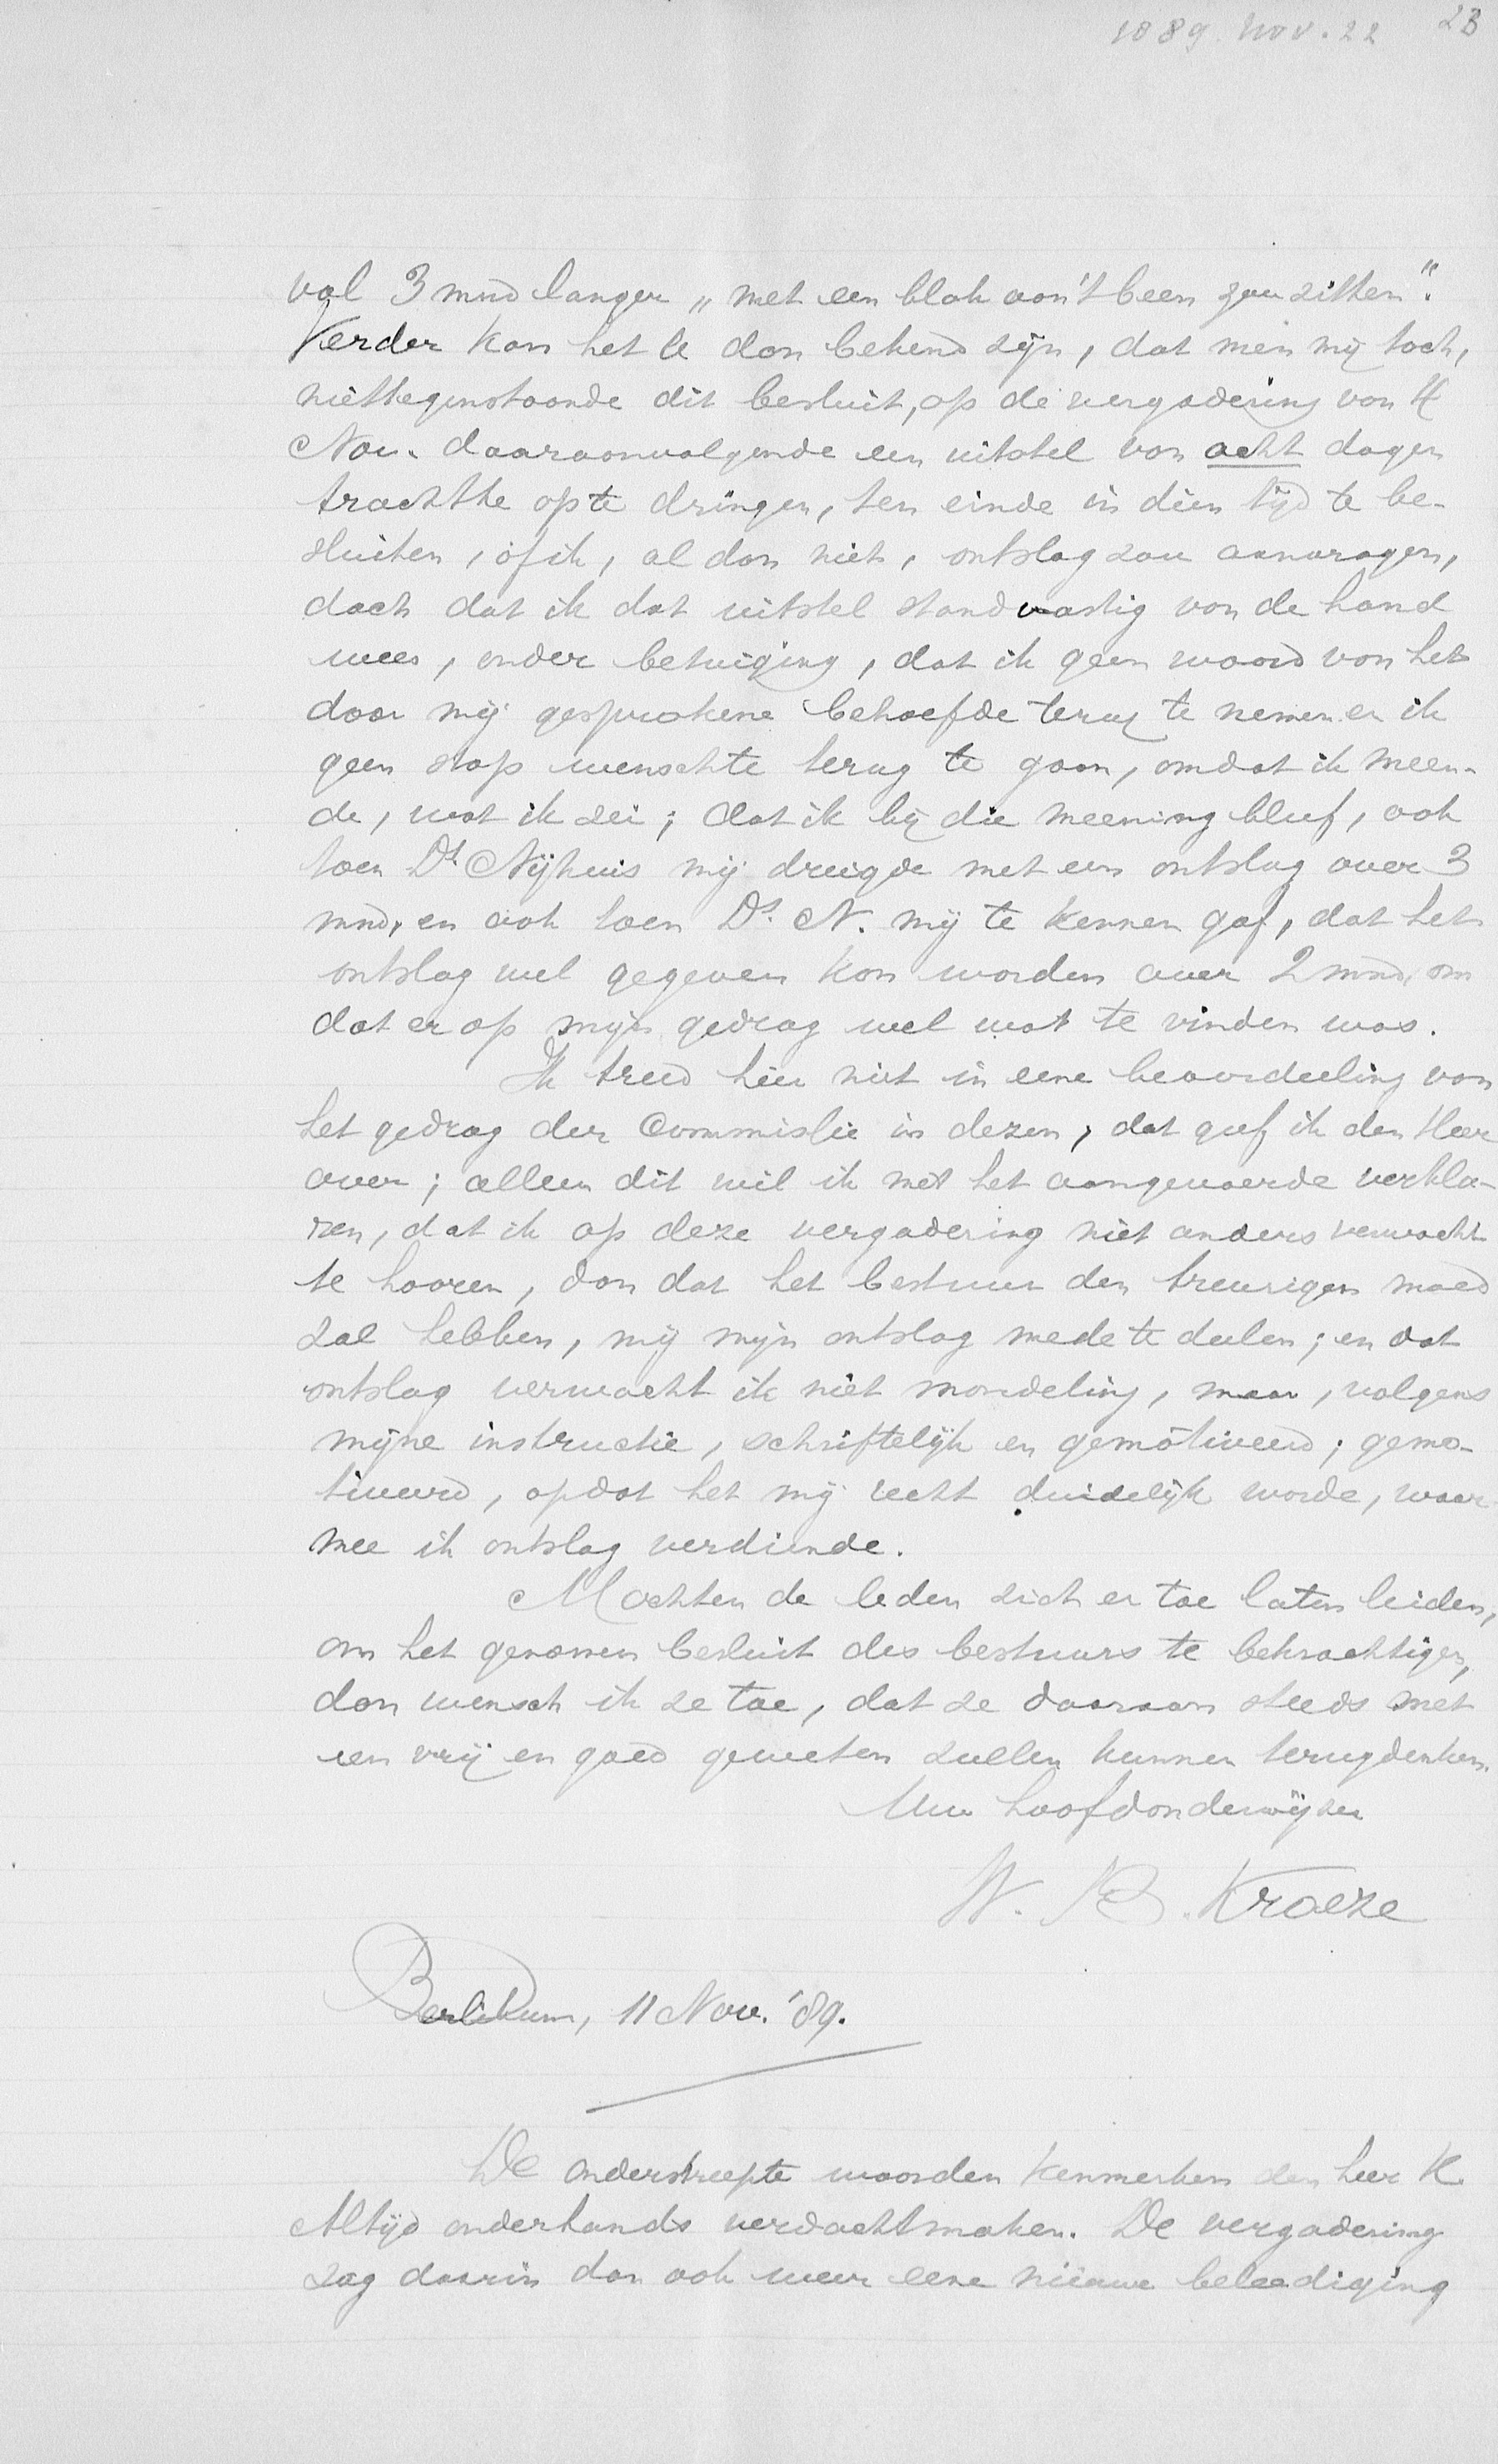 1889. Nov. 22 23
val 3 mnd langer „met een blok aan't been zou zitten".
Verder kan het U dan bekend zijn, dat men mij toch,
niettegenstaande dit besluit, op de vergadering van 4
Nov. daaraanvolgende een uitstel van acht dagen
trachtte op te dringen, ten einde in dien tijd te be-
sluiten, of ik, al dan niet, ontslag zou aanvragen,
doch dat ik dat uitstel standvastig van de hand
wees, onder betuiging, dat ik geen woord van het
door mij gesprokene behoefde terug te nemen en ik
geen stap wenschte terug te gaan, omdat ik meen-
de, wat ik zei; dat ik bij die meening bleef, ook
toen Ds. Nijhuis mij dreigde met een ontslag over 3
mnd, en ook toen Ds. N. mij te kennen gaf, dat het
ontslag wel gegeven kon worden over 2 mnd, om
dat er op mijn gedrag wel wat te vinden was.
Ik treed hier niet in eene beoordeeling van
het gedrag der Commissie in dezen, dat geef ik den Heer
over; alleen dit wil ik met het aangevoerde verkla-
ren, dat ik op deze vergadering niet anders verwacht
te hooren, dan dat het bestuur den treurigen moed
zal hebben, mij mijn ontslag mede te deelen; en dat
ontslag verwacht ik niet mondeling, maar, volgens
mijne instructie, schriftelijk en gemotiveerd; gemo-
tiveerd, opdat het mij recht duidelijk worde, waar
mee ik ontslag verdiende.
Mochten de leden zich er toe laten leiden,
om het genomen besluit des bestuurs te bekrachtigen,
dan wensch ik ze toe, dat ze daaraan steeds met
een vrij en goed geweten zullen kunnen terugdenken.
Uw hoofdonderwijzer
W. B. Kroeze
Berlikum, 11 Nov. '89.
De onderstreepte woorden kenmerken den heer K.
Altijd onderhands verdachtmaken. De vergadering
zag daarin dan ook weer eene nieuwe beleediging